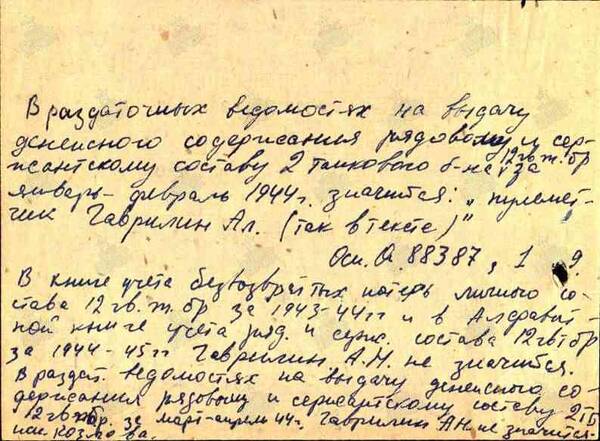 В раздаточных ведомостях на выдачу
денежного содержания рядовому и сер-
жантскому составу 2 танкового б-на 12 гв. т. бр за
январь-февраль 1944 г. значится: „пулемет-
чик Гаврилин Ал. (так в тексте)"
Осн. О. 88387, 1 9.
В книге учета безвозвратных потерь личного со-
става 12 гв. т. бр за 1943-44 гг и в Алфавит-
ной книге учета ряд. и серж. состава 12 гв тбр
за 1944-45 гг Гаврилин А.Н. не значится.
В раздат. ведомостях на выдачу денежного со-
держания рядовому и сержантскому составу 2ТБ
12 гв тбр. за март-апрель 44 г. Гаврилин А.Н не значится.